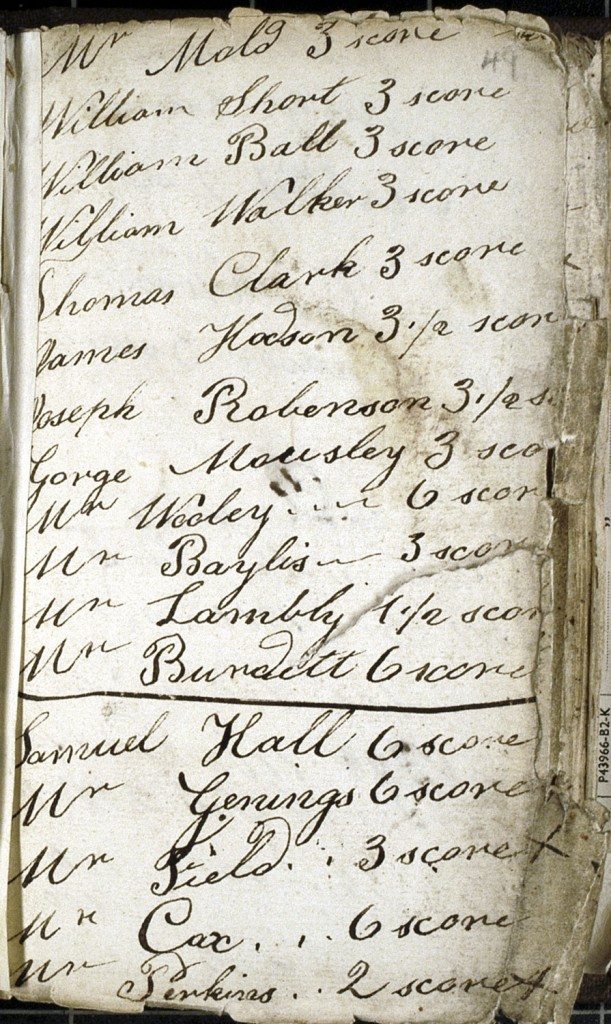 Mr Mold 3 score
49
William Short 3 score
William Ball 3 score
William Walker 3 score
Thomas Clark 3 score
James Hodson 3 1/2 scor
Joseph Robenson 3 1/2 s
Gorge Mousley 3 sco
Mr Wooley . . 6 scor
Mr Baylis 3 scor
Mr Lambly 1 1/2 scor
Mr Burdett 6 score
Samuel Hall 6 score
Mr Genings 6 score
Mr Field . . 3 score X
Mr Cox . . 6 score
Mr Perkins . . 2 score X
P43966-B2-K